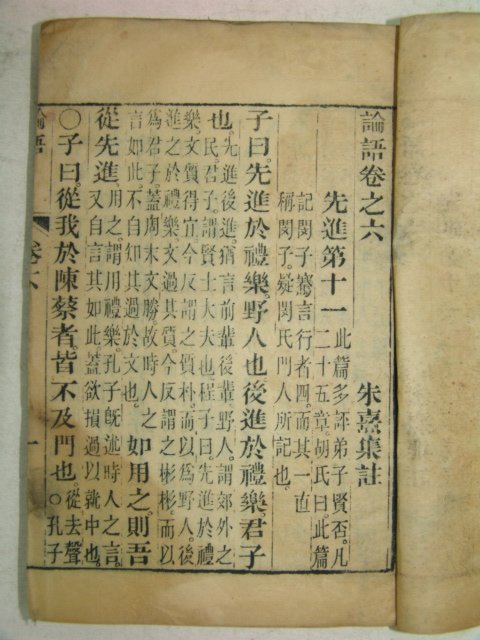 論語卷之六　朱熹集註
先進第十一
此篇多評弟子賢否。凡
二十五章。胡氏曰。此篇
記閔子騫言行者四。而其一直
稱閔子。疑閔氏門人所記也。
子曰。先進於禮樂。野人也。後進於禮樂。君子
也。
先進後進。猶言前輩後輩。野人。謂郊外之
民。君子。謂賢士大夫也。程子曰。先進於禮
樂。文質得宜。今反謂之質朴。而以爲野人。後
進之於禮樂。文過其質。今反謂之彬彬。而以
爲君子。蓋周末文勝。故時人之
言如此。不自知其過於文也。
如用之。則吾
從先進。
用之。謂用禮樂。孔子旣述時人之言。
又自言其如此。蓋欲損過以就中也。
○子曰。從我於陳蔡者。皆不及門也。
從去聲
○孔子
論語　卷六　一